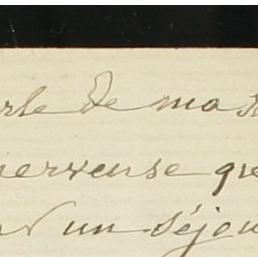 de ma
nerveuse que
un séjou